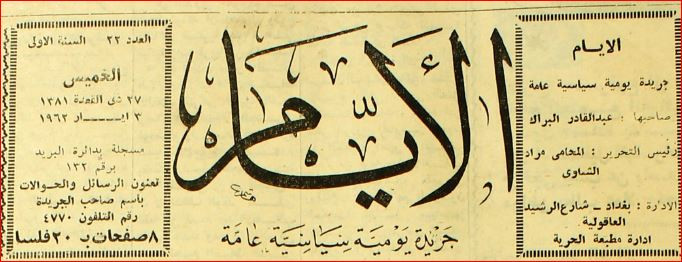 الايام
جريدة يومية سياسية عامة
صاحبها : عبدالقادر البراك
رئيس التحرير : المحامى مراد
الشاوى
الادارة : بغداد – شارع الرشيد
العاقولية
ادارة مطبعة الحرية
الأيام
جريدة يومية سياسية عامة
العدد ٢٢ السنة الاولى
الخميس
٢٧ ذى القعدة ١٣٨١
٣ ايــــار ١٩٦٢
مسجلة بدائرة البريد
برقم ١٣٢
تعنون الرسائل والحوالات
باسم صاحب الجريدة
رقم التلفون ٤٧٧٠
٨ صفحات بـ ٢٠ فلسا